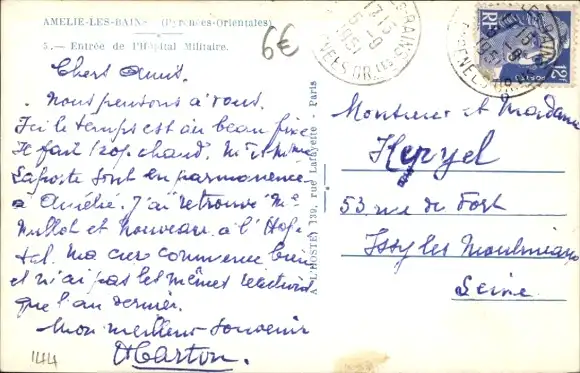 AMELIE-LES-BAINS (Pyrénées-Orientales)
5. — Entrée de l'Hôpital Militaire.
6€
Chers Amis.
Nous pensons à vous.
Ici le temps est au beau fixe
Il fait trop chaud. Mr et Mme
Laposte sont en permanence
à Amélie. J'ai retrouvé Mr
Mullot et nouveau à l'Hopi-
tal. Ma cure commence bien
et n'ai pas les mêmes réactions
que l'an dernier.
Mon meilleur souvenir
Marton.
144
A. L'HOSTE, 139, rue Lafayette - Paris
RF
12F
POSTES
Monsieur et Madame
53 rue de
Issy les Moulineaux
Seine